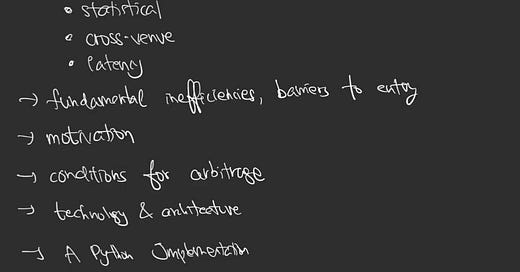 • statistical
• cross-venue
• latency
→ fundamental inefficiencies, barriers to entry
→ motivation
→ conditions for arbitrage
→ technology & architecture
→ A Python Implementation